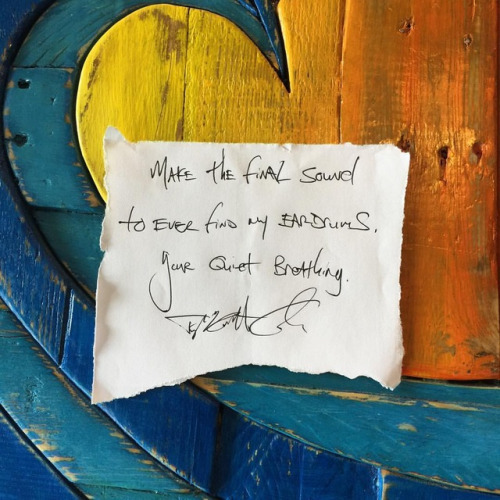 MAKE the finAL Sound
to EVER find my EARDRUMS.
your Quiet Breathing.